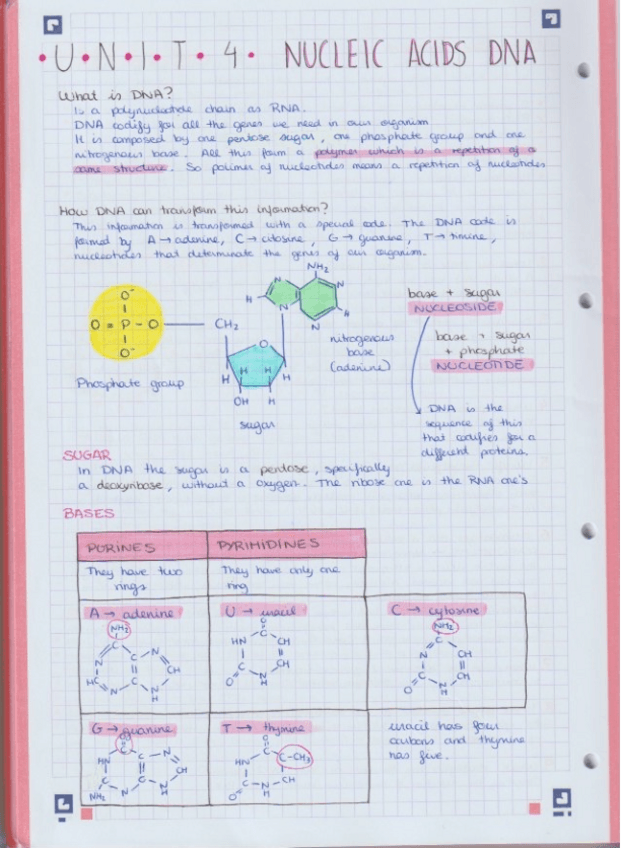 U·N·I·T·4· NUCLEIC ACIDS DNA
What is DNA?
Is a polynucleotide chain as RNA.
DNA codify for all the genes we need in our organism
It is composed by one pentose sugar, one phosphate group and one
nitrogenous base. All this form a polymer which is a repetition of a
same structure. So polimer of nucleotides means a repetition of nucleotides
How DNA can transform this information?
This information is transformed with a special code. The DNA code is
formed by A→adenine, C→citosine, G→guanine, T→timine,
nucleotides that determinate the genes of our organism.
NH2
N
N
H
N
N
H
O-
O = P - O
O-
CH2
O
H
H
H
H
OH
H
Phosphate group
sugar
nitrogenous
base
(adenine)
base + sugar
NUCLEOSIDE
base + sugar
+ phosphate
NUCLEOTIDE
DNA is the
sequence of this
that codifies for a
different proteins.
SUGAR
In DNA the sugar is a pentose, specifically
a deoxyribase, without a oxygen. The ribose one is the RNA one's
BASES
PURINES
PYRIMIDINES
They have two
rings
They have only one
ring
A→ adenine
NH2
C
N
C
N
CH
HC
C
N
N
H
U → uracil
O
C
HN
CH
CH
C
O
N
H
C → cytosine
NH2
C
N
CH
C
CH
O
N
H
G→ guanine
O
C
HN
C
N
CH
C
C
NH2
N
N
H
T → thymine
O
C
HN
C-CH3
C
CH
O
N
H
uracil has four
carbons and thymine
has five.